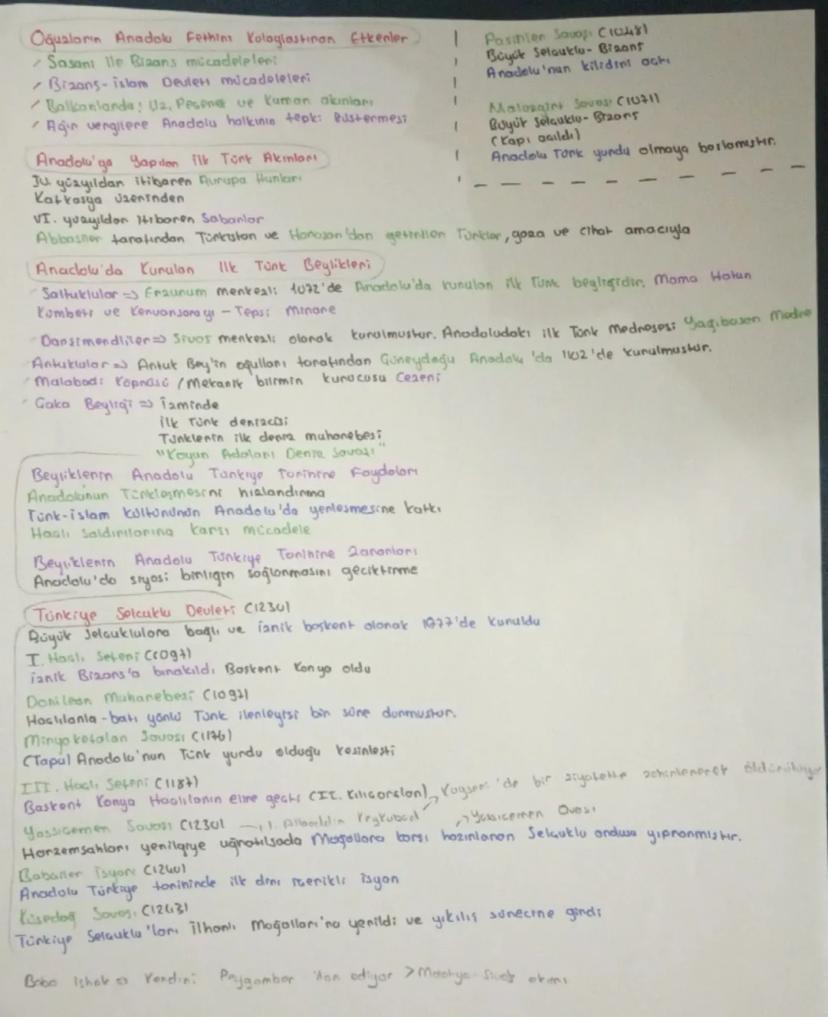 Oğuzların Anadolu Fethini Kolaylaştıran Etkenler
Sasani ile Bizans mücadeleleri
Bizans-İslam Devleti mücadeleleri
Balkanlarda; Uz, Peçenek ve Kuman akınları
Ağır vergilere Anadolu halkının tepki göstermesi
Pasinler Savaşı (1048)
Büyük Selçuklu-Bizans
Anadolu'nun kilidini açtı
Malazgirt Savaşı (1071)
Büyük Selçuklu-Bizans
(Kapı açıldı)
Anadolu Türk yurdu olmaya başlamıştır.
Anadolu'ya Yapılan İlk Türk Akınları
IV. yüzyıldan itibaren Avrupa Hunları
Kafkasya üzerinden
VI. yüzyıldan itibaren Sabarlar
Abbasiler tarafından Türkistan ve Horasan'dan getirilen Türkler, gaza ve cihat amacıyla
Anadolu'da Kurulan İlk Türk Beylikleri
Saltuklular => Erzurum merkezli 1072'de Anadolu'da kurulan ilk Türk beyliğidir. Mama Hatun
Kümbeti ve Kervansarayı - Tepsi Minare
Danişmendliler => Sivas merkezli olarak kurulmuştur. Anadoludaki ilk Türk Medresesi Yağıbasan Medre
Artuklular => Artuk Bey'in oğulları tarafından Güneydoğu Anadolu'da 1102'de kurulmuştur.
Malabadi Köprüsü / Mekanik bilimin kurucusu Cezeri
Çaka Beyliği => İzmirde
ilk Türk denizcisi
Türklerin ilk deniz muharebesi
"Koyun Adaları Deniz Savaşı"
Beyliklerin Anadolu Türkiye Tarihine Faydaları
Anadolunun Türkleşmesini hızlandırma
Türk-İslam kültürünün Anadolu'da yerleşmesine katkı
Haçlı Saldırılarına karşı mücadele
Beyliklerin Anadolu Türkiye Tarihine Zararları
Anadolu'da siyasi birliğin sağlanmasını geciktirme
Türkiye Selçuklu Devleti (1230)
Büyük Selçuklulara bağlı ve İznik başkent olarak 1077'de kuruldu
I. Haçlı Seferi (1097)
İznik Bizans'a bırakıldı Başkent Konya oldu
Dorileon Muharebesi (1097)
Haçlılarla-batı yönlü Türk ilerleyişi bir süre durmuştur.
Miryokefalon Savaşı (1176)
(Tapu) Anadolu'nun Türk yurdu olduğu kesinleşti
III. Haçlı Seferi (1187)
Başkent Konya Haçlıların eline geçti (II. Kılıçarslan)
Kayseri'de bir ziyafette zehirlenerek öldürülüyor
Yassıçemen Savaşı (1230) I. Alaeddin Keykubad Yassıçemen Ovası
Harzemşahları yenilgiye uğratılsada Moğollara karşı hazırlanan Selçuklu ordusu yıpranmıştır.
Babailer İsyanı (1240)
Anadolu Türkiye tarihinde ilk dini içerikli isyan
Kösedağ Savaşı (1243)
Türkiye Selçuklu'ları İlhanlı Moğolları'na yenildi ve yıkılış sürecine girdi
Baba İshak => Kendini Peygamber ilan ediyor